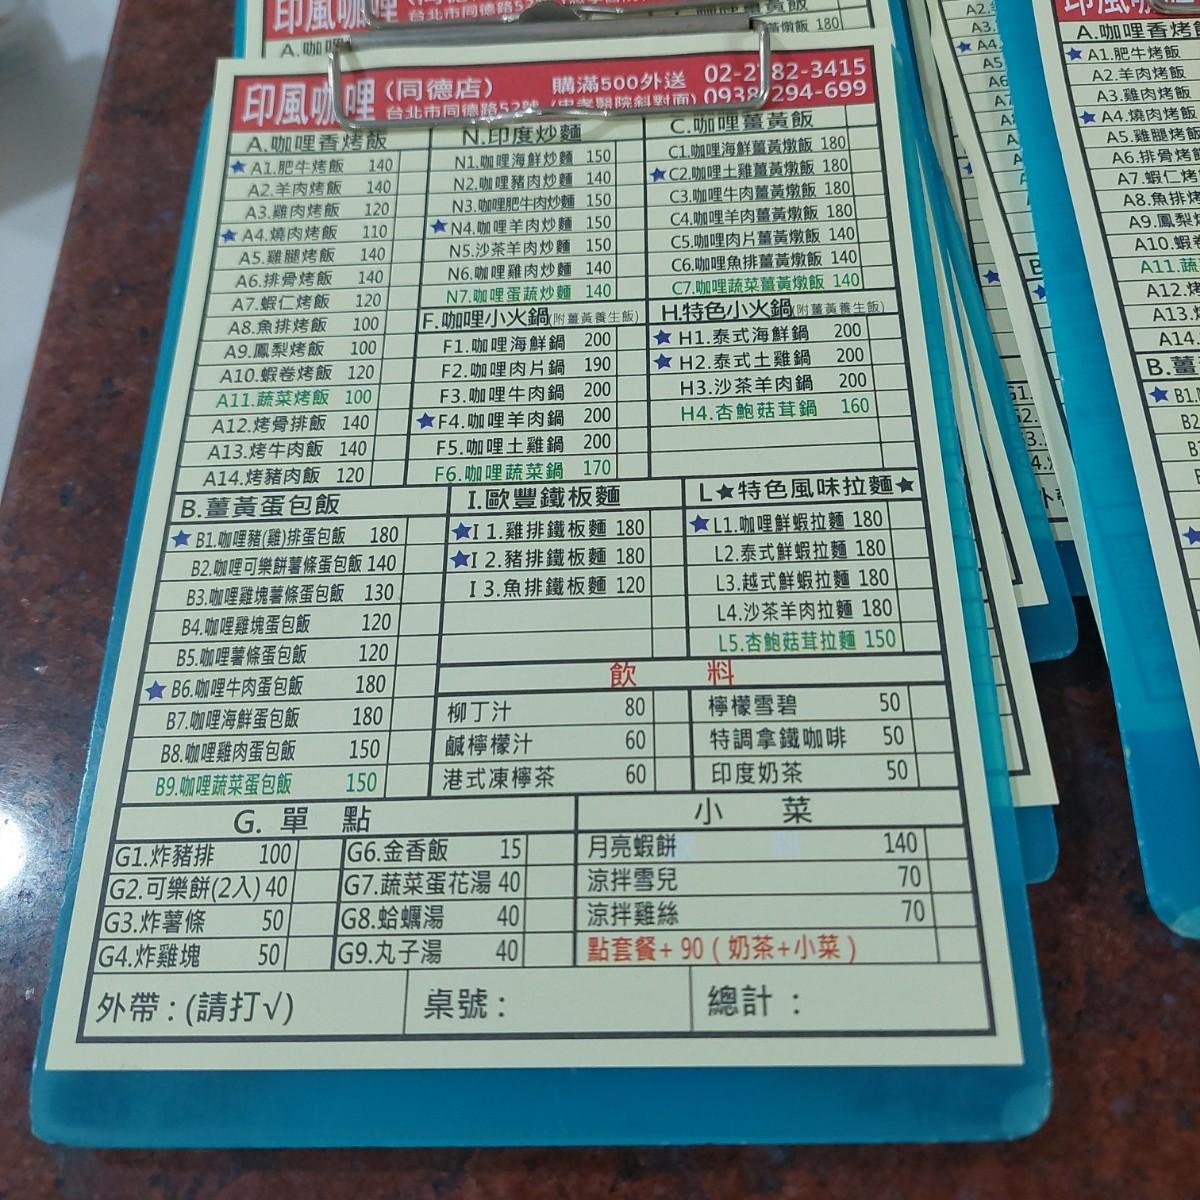 印風咖哩 (同德店) 購滿500外送 02-2782-3415
台北市同德路52號 (忠孝醫院斜對面) 0938-294-699
A.咖哩香烤飯
★A1.肥牛烤飯 140
A2.羊肉烤飯 140
A3.雞肉烤飯 120
★A4.燒肉烤飯 110
A5.雞腿烤飯 140
A6.排骨烤飯 140
A7.蝦仁烤飯 120
A8.魚排烤飯 100
A9.鳳梨烤飯 100
A10.蝦卷烤飯 120
A11.蔬菜烤飯 100
A12.烤骨排飯 140
A13.烤牛肉飯 140
A14.烤豬肉飯 120
N.印度炒麵
N1.咖哩海鮮炒麵 150
N2.咖哩豬肉炒麵 140
N3.咖哩肥牛肉炒麵 150
★N4.咖哩羊肉炒麵 150
N5.沙茶羊肉炒麵 150
N6.咖哩雞肉炒麵 140
N7.咖哩蛋蔬炒麵 140
C.咖哩薑黃飯
C1.咖哩海鮮薑黃燉飯 180
★C2.咖哩土雞薑黃燉飯 180
C3.咖哩牛肉薑黃燉飯 180
C4.咖哩羊肉薑黃燉飯 180
C5.咖哩肉片薑黃燉飯 140
C6.咖哩魚排薑黃燉飯 140
C7.咖哩蔬菜薑黃燉飯 140
F.咖哩小火鍋(附薑黃養生飯)
F1.咖哩海鮮鍋 200
F2.咖哩肉片鍋 190
F3.咖哩牛肉鍋 200
★F4.咖哩羊肉鍋 200
F5.咖哩土雞鍋 200
F6.咖哩蔬菜鍋 170
H.特色小火鍋(附薑黃養生飯)
★H1.泰式海鮮鍋 200
★H2.泰式土雞鍋 200
H3.沙茶羊肉鍋 200
H4.杏鮑菇茸鍋 160
B.薑黃蛋包飯
★B1.咖哩豬(雞)排蛋包飯 180
B2.咖哩可樂餅薯條蛋包飯 140
B3.咖哩雞塊薯條蛋包飯 130
B4.咖哩雞塊蛋包飯 120
B5.咖哩薯條蛋包飯 120
★B6.咖哩牛肉蛋包飯 180
B7.咖哩海鮮蛋包飯 180
B8.咖哩雞肉蛋包飯 150
B9.咖哩蔬菜蛋包飯 150
I.歐豐鐵板麵
★I 1.雞排鐵板麵 180
★I 2.豬排鐵板麵 180
I 3.魚排鐵板麵 120
L★特色風味拉麵★
★L1.咖哩鮮蝦拉麵 180
L2.泰式鮮蝦拉麵 180
L3.越式鮮蝦拉麵 180
L4.沙茶羊肉拉麵 180
L5.杏鮑菇茸拉麵 150
飲 料
柳丁汁 80
鹹檸檬汁 60
港式凍檸茶 60
檸檬雪碧 50
特調拿鐵咖啡 50
印度奶茶 50
G. 單 點
G1.炸豬排 100
G2.可樂餅(2入) 40
G3.炸薯條 50
G4.炸雞塊 50
G6.金香飯 15
G7.蔬菜蛋花湯 40
G8.蛤蠣湯 40
G9.丸子湯 40
小 菜
月亮蝦餅 140
涼拌雪兒 70
涼拌雞絲 70
點套餐+ 90 ( 奶茶+小菜 )
外帶 : (請打√)
桌號 :
總計 :
A.咖哩香烤
★A1.肥牛烤飯
A2.羊肉烤飯
A3.雞肉烤飯
★A4.燒肉烤飯
A5.雞腿烤飯
A6.排骨烤
A7.蝦仁烤
A8.魚排烤
A9.鳳梨
A10.蝦卷
A11.蔬
A12.烤
A13.
A14.
B.薑
★B1.
B2